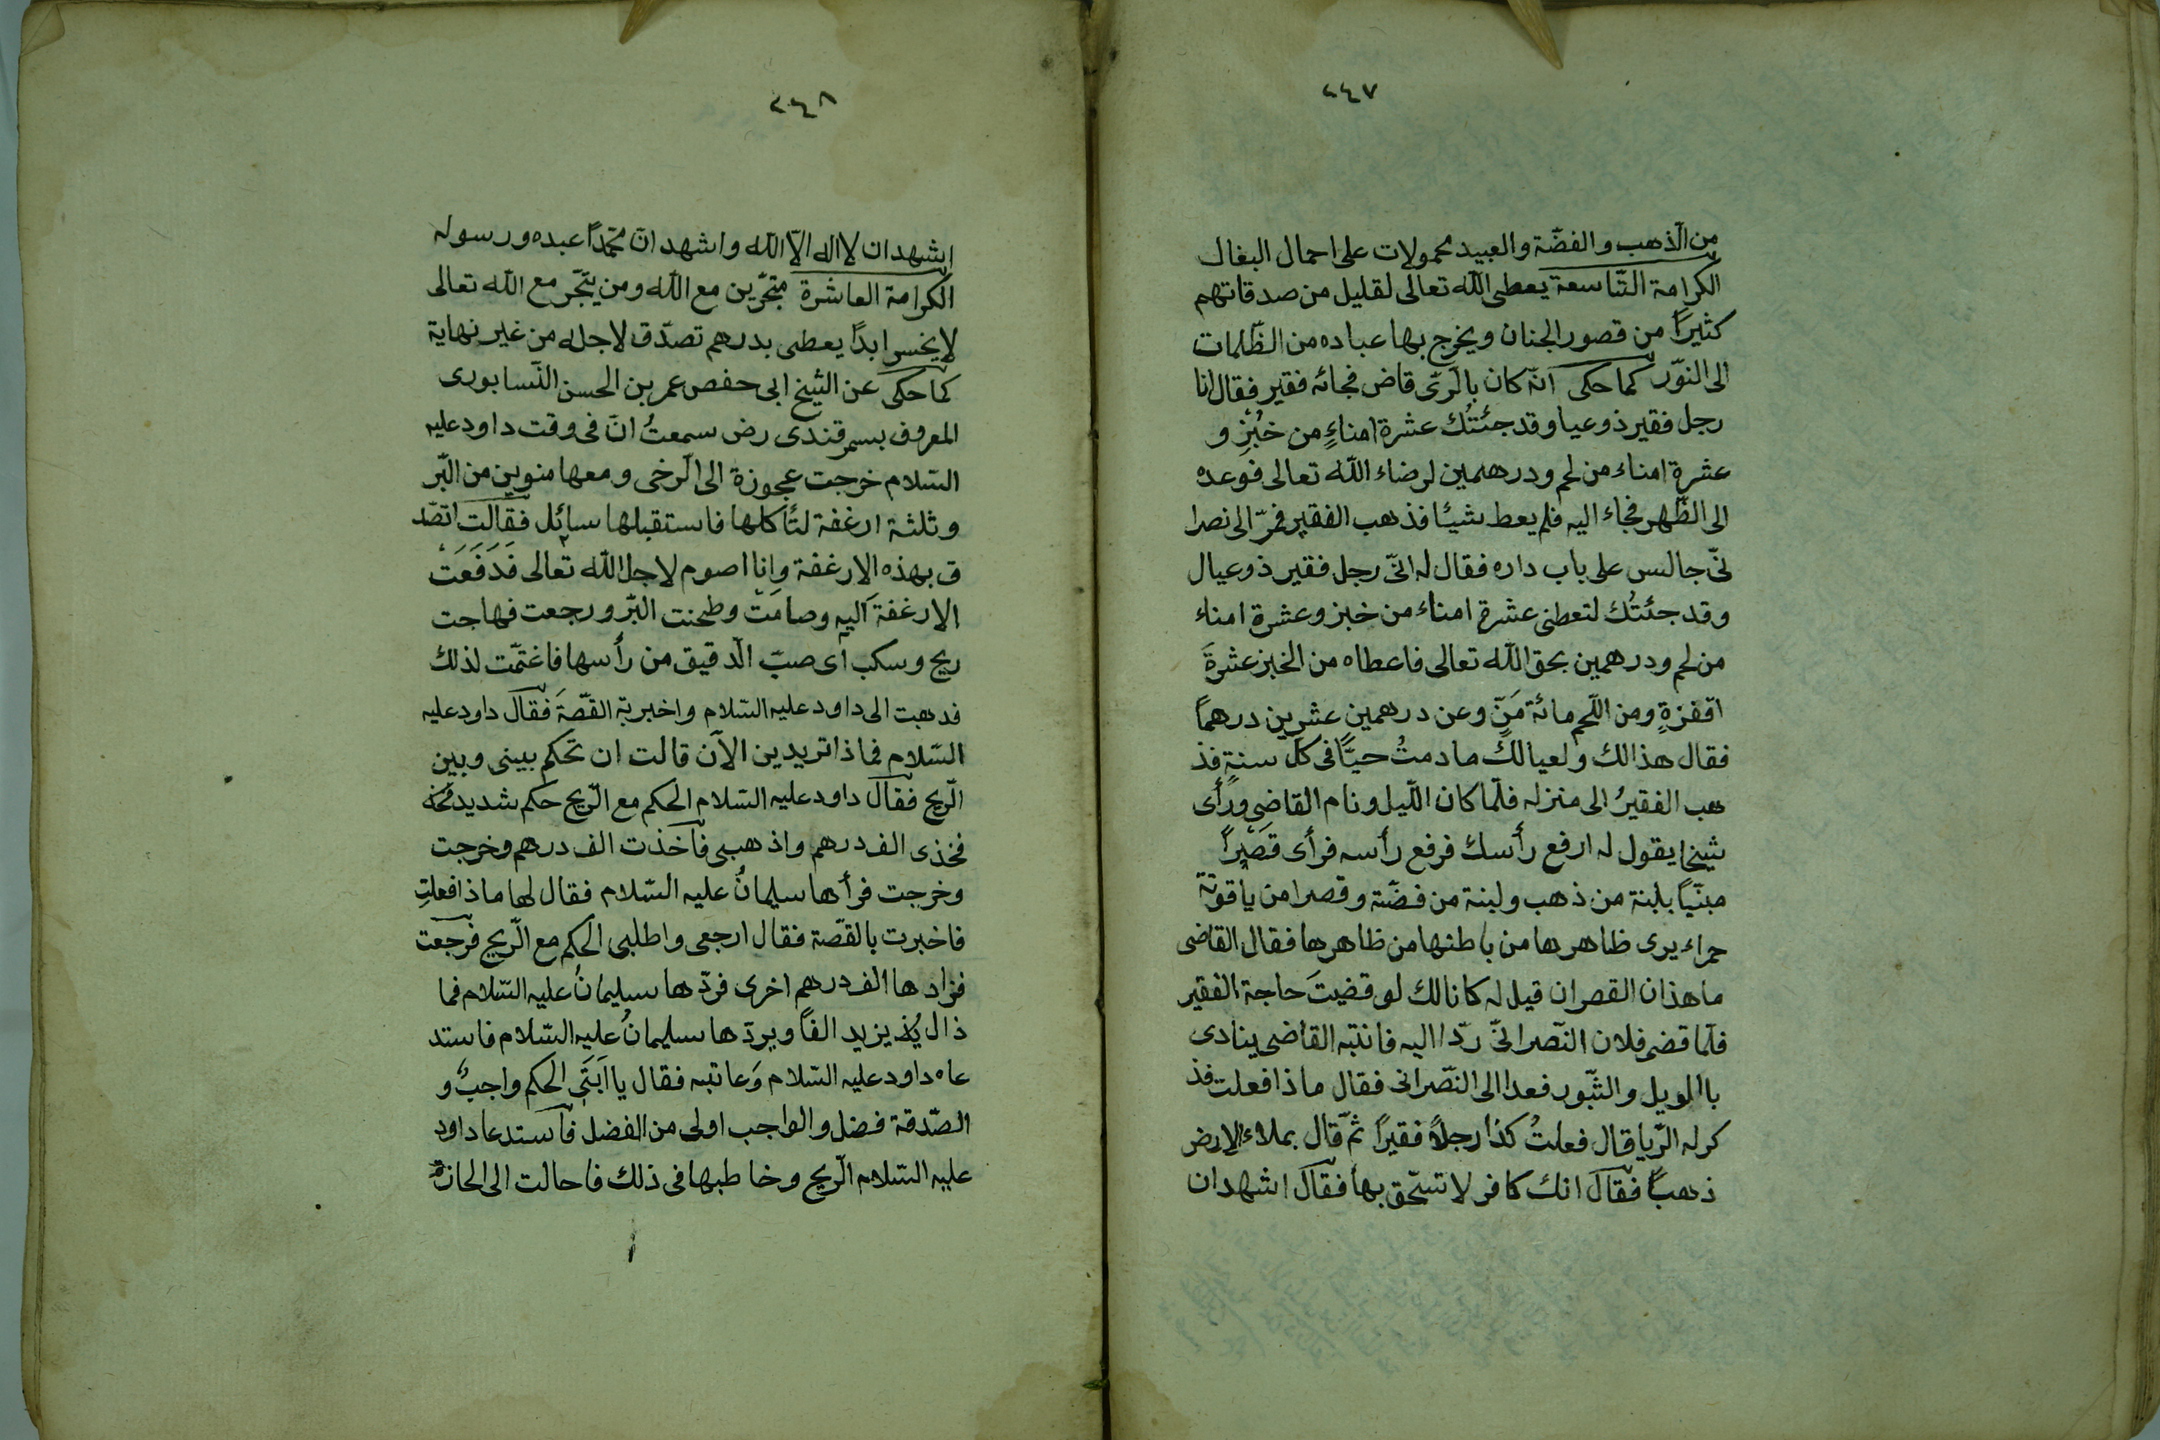 ٢٤٧
من الذّهب والفضّة والعبيد محمولات على احمال البغال
الكرامة التّاسعة يعطى اللّه تعالى لقليل من صدقاتهم
كثيرًا من قصور الجنان ويخرج بها عباده من الظّلمات
الى النوّر كما حكى انّه كان بالرّى قاض فجائه فقير فقال انا
رجل فقير ذو عيا وقد جئتُك عشرة امناءٍ من خبُزِ و
عشرة امناء من لحم ودرهمين لرضاء اللّه تعالى فوَعده
الى الظّهر فجاء اليه فلم يعط شيئا فذهب الفقير فمرّ الى نصرا
نّى جالس على باب داره فقال له انّى رجل فقير ذو عيال
وقد جئتُك لتعطنى عشرة امناء من خبز وعشرة امناء
من لحم ودرهمين بحق اللّه تعالى فاعطاه من الخبز عشرةَ
اقفزةٍ ومن اللّحم مائة مَنٍّ وعن درهمين عشرين درهماً
فقال هذا لك ولعيالك مادمتُ حيًّا فى كل سنةٍ فذ
هب الفقيرُ الى منزله فلمّا كان اللّيل ونام القاضى ورأى
شيخا يقول له ارفع رأسك فرفع رأسه فرأى قصَيراً
مبنّياً بلبنة من ذهب ولبنة من فضّة وقصرا من ياقوتة
حمراء يرى ظاهرها من باطنها من ظاهرها فقال القاضى
ما هذان القصران قيل له كانا لك لو قضيتَ حاجة الفقير
فلمّا قضى فلان النّصرانّى ردّا اليه فانتبه القاضى ينادى
باالويل والثّبور فعدا الى النّصرانى فقال ماذا فعلت فذ
كر له الرّيا قال فعلتُ كذا رجلاً فقيراً ثمّ قال بملاء الارض
ذهباً فقال انك كافر لا تستحّق بها فقال اشهد ان
٢٤٨
اشهد ان لا اله الاّ اللّه واشهد انّ محمّداً عبده ورسوله
الكرامة العاشرة متجّرين مع اللّه ومن يتّجر مع اللّه تعالى
لا يخسر ابدًا يعطى بدرهم تصدّق لاجله من غير نهاية
كما حكى عن الشّيخ ابى حفص عمر بن الحسن النّسابورى
المعروف بسمرقندى رض سمعتُ انّ فى وقت داود عليه
السّلام خرجت عجوزة الى الرّخى ومعها منوين من البّر
وثلثة ارغفة لتأكلها فاستقبلها سائل فقالت اتصّد
ق بهذه الارغفة وانا اصوم لاجل اللّه تعالى فَدَفَعَتْ
الارغفة اليه وصامَتْ وطحنت البّر ورجعت فهاجت
ريح وسكب اى صبّ الّدقيق من رأسها فاغتمّت لذلك
فدهبت الى داود عليه السّلام واخبربّه القصّةَ فقال داود عليه
السّلام فماذا تريدين الآن قالت ان تحكم بينى وبين
الّريح فقال داود عليه السّلام الحكم مع الّريح حكم شديد
فخذى الف درهم واذهبى فاخذت الف درهم وخرجت
وخرجت فرأها سليمانُ عليه السّلام فقال لها ماذا فعلتِ
فاخبرت بالقصّة فقال ارجعى واطلبى الحكم مع الّريح فرجعت
فزادها الف درهم اخرى فردّها سليمانُ عليه السّلام فما
ذال يزيد الفاً ويردّها سليمانُ عليه السّلام فاستد
عاه داود عليه السّلام وَعاتبه فقال يا اَبَتَى الحكم واجبٌ و
الصّدقة فضل والواجب اولى من الفضل فاستدعا داود
عليه السّلام الّريح وخاطبها فى ذلك فاحالت الى الخازنة